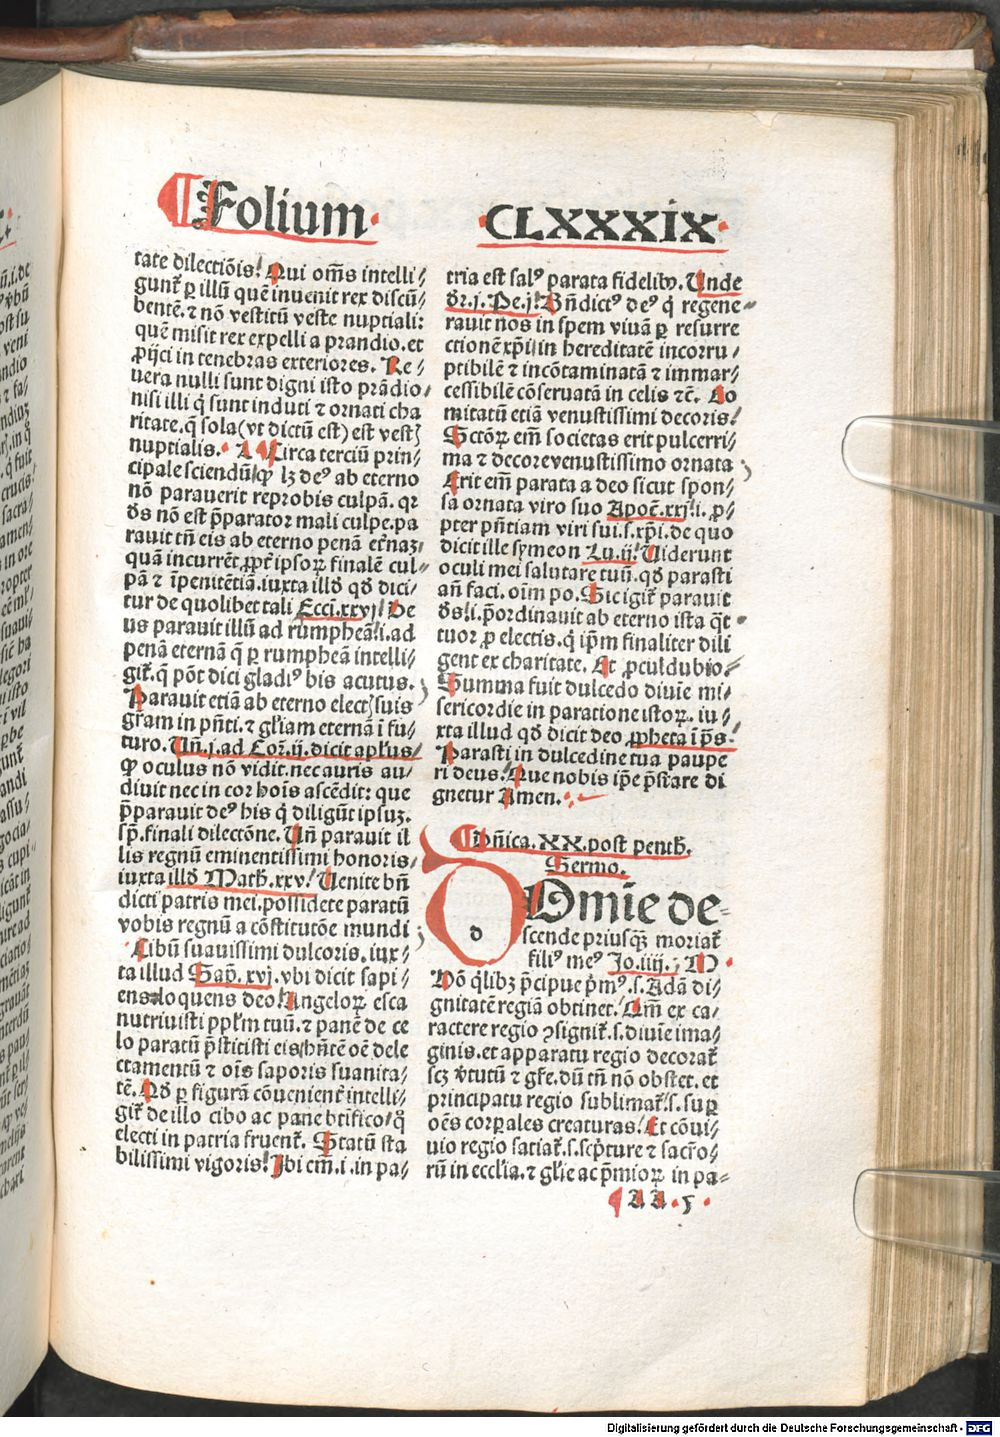 Folium CLXXXIX
tate dilectiõis! Qui om̃s intelli/
gunt̃ ꝑ illũ quẽ inuenit rex discũ/
bentẽ. ⁊ nõ vestitũ veste nuptiali:
quẽ misit rex expelli a prandio. et
ꝓijci in tenebras exteriores. Re/
uera nulli sunt digni isto prãdio
nisi illi q̃ sunt induti ⁊ ornati cha
ritate. q sola (vt dictũ est) est vestꝫ
nuptialis. A Circa terciũ prin/
cipale sciendũ/ ꝙ lꝫ deꝰ ab eterno
nõ parauerit reprobis culpã. qr
ds̃ nõ est p̃parator mali culpe. pa
rauit tñ eis ab eterno penã et̃naꝫ/
quã incurrẽt ꝓpt̃ ipsoꝝ finalẽ cul/
pã ⁊ ĩpenitẽtiã. iuxta illd̃ qd̃ dici/
tur de quolibet tali Ecci̾. xxvj! De
us parauit illũ ad rumpheã/.i. ad
penã eternã q ꝑ rumpheã intelli/
git̃. q põt dici gladiꝰ bis acutus.
Parauit etiã ab eterno electꝫ suis
grãm in pñti. ⁊ gl̃iam eternã ĩ fu/
turo. Uñ. j. ad Cor̃. ij. dicit apl̃us
ꝙ oculus nõ vidit. nec auris au/
diuit nec in cor hoĩs ascẽdit: que
p̃parauit deꝰ his q̃ diligũt ipsuꝫ.
sp̃. finali dilectõne. Uñ parauit il
lis regnũ eminentissimi honoris/
iuxta illd̃ Math̃. xxv! Uenite bñ
dicti patris mei. possidete paratũ
vobis regnũ a cõstitutõe mundi
Cibũ suauissimi dulcoris. iux/
ta illud Sap̃. xvj. vbi dicit sapi/
ens loquens deo! Angeloꝝ esca
nutriuisti ppl̃m tuũ. ⁊ panẽ de ce
lo paratũ p̃stitisti eis/ hñtẽ oẽ dele
ctamentũ ⁊ oĩs saporis suauita/
tẽ. Qd̃ ꝑ figurã cõuenient̃ intelli/
git̃ de illo cibo ac pane btifico/ q̃
electi in patria fruent̃. Statũ sta
bilissimi vigoris! Ibi em̃ .i. in pa/
tria est salꝰ parata fidelibꝰ. Unde
dr̃. j. Pe. j! Bñdictꝰ deꝰ q̃ regene/
rauit nos in spem viuã ꝑ resurre
ctionẽ xp̃i/ in hereditatẽ incorru/
ptibilẽ ⁊ incõtaminatã ⁊ immar/
cessibilẽ cõseruatã in celis ⁊c̃. Co
mitatũ etiã venustissimi decoris!
Sctõꝝ em̃ societas erit pulcerri/
ma ⁊ decore venustissimo ornata
Erit em̃ parata a deo sicut spon/
sa ornata viro suo Apoc̃. xxj/.i. ꝓ/
pter pñtiam viri sui. s. xp̃i. de quo
dicit ille symeon Lu. ij! Uiderunt
oculi mei salutare tuũ. qd̃ parasti
añ faci. oĩm po. Sic igit̃ parauit
ds̃/.i. p̃ordinauit ab eterno ista q̃t
tuor ꝓ electis. q ip̃m finaliter dili
gent ex charitate. Et ꝓculdubio/
Summa fuit dulcedo diuie mi/
sericordie in paratione istoꝝ. iu/
xta illud qd̃ dicit deo ꝓpheta ĩ ps̃!
Parasti in dulcedine tua paupe
ri deus! Que nobis ip̃e p̃stare di
gnetur Amen.
Dñica. XX. post penth̃.
Sermo.
d Domie de
scende priusꝙ̃ moriat̃
filiꝰ meꝰ Jo. iiij. M
Hõ q̃libꝫ p̃cipue p̃mꝰ. s. Adã di/
gnitatẽ regiã obtinet! Qm̃ ex ca/
ractere regio ꝯsignit̃. s. diuie ima/
ginis. et apparatu regio decorat̃
scꝫ ṽtutũ ⁊ gr̃e. dũ tñ nõ obstet. et
principatu regio sublimat̃/ s. suꝑ
oẽs corꝑales creaturas! Et cõui/
uio regio satiat̃. s. scp̃ture ⁊ sacr̃o/
rũ in eccl̃ia. ⁊ gl̃ie ac p̃mioꝝ in pa/
AA 5
Digitalisierung gefördert durch die Deutsche Forschungsgemeinschaft - DFG